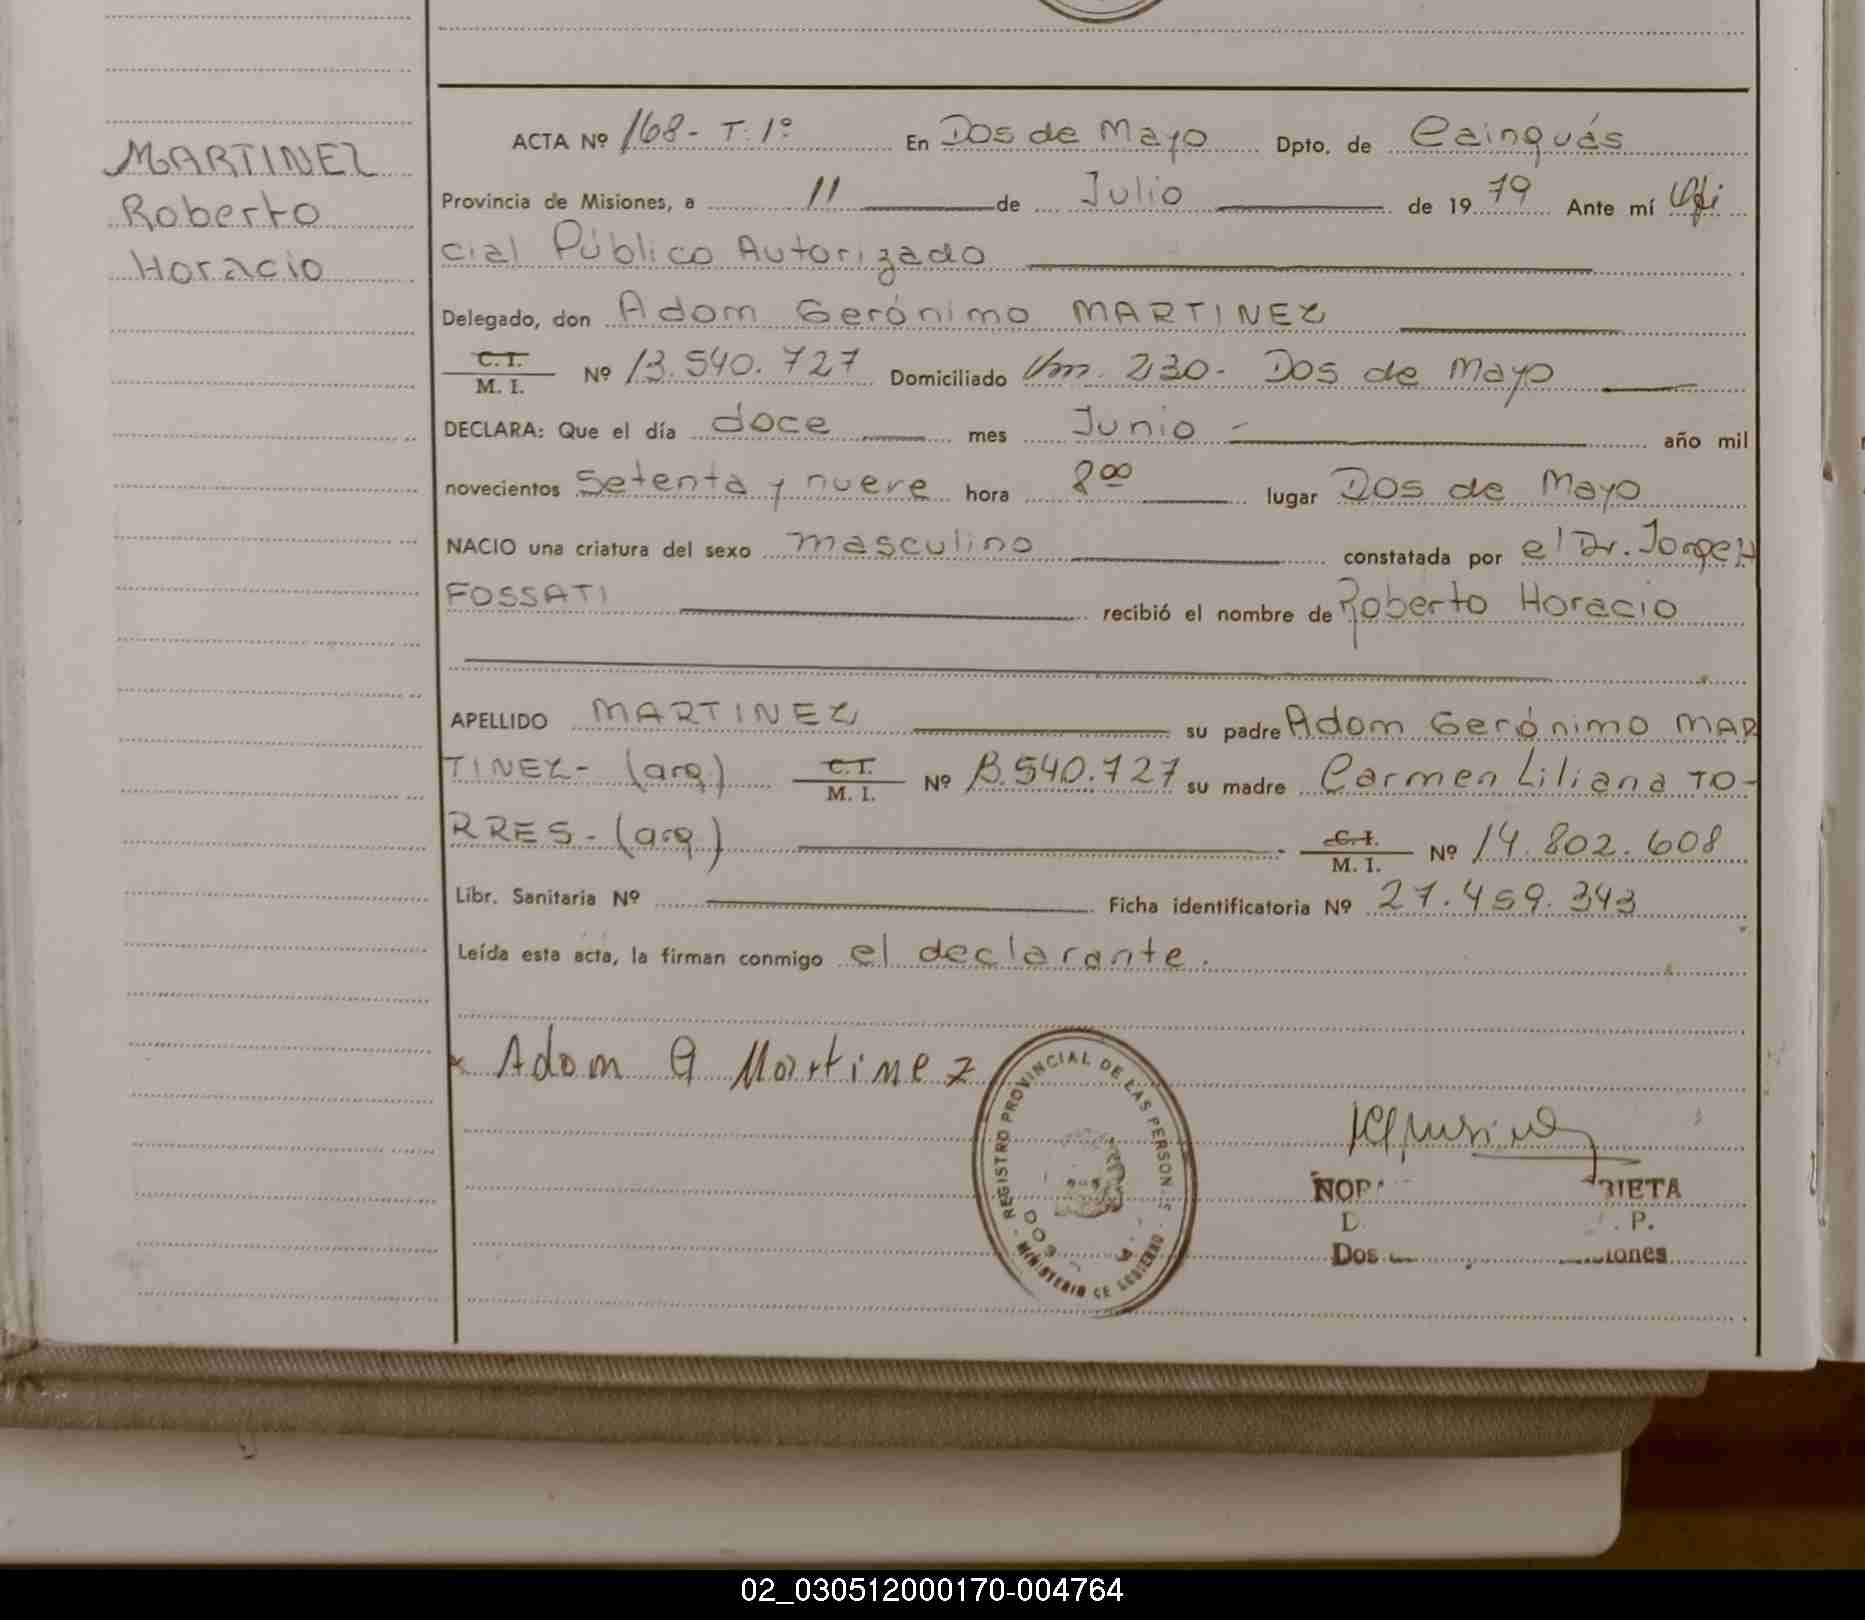 MARTINEZ
Roberto
Horacio
ACTA Nº 168- T. 1º En Dos de Mayo Dpto. de Cainguás
Provincia de Misiones, a 11 de Julio de 1979 Ante mí Ofi
cial Público Autorizado
Delegado, don Adom Gerónimo MARTINEZ
C.I. / M. I. Nº 13.540.727 Domiciliado Km. 230- Dos de Mayo
DECLARA: Que el día doce mes Junio - año mil
novecientos setenta y nueve hora 8 00 lugar Dos de Mayo
NACIO una criatura del sexo masculino constatada por el Dr. Jorge H
FOSSATI recibió el nombre de Roberto Horacio
APELLIDO MARTINEZ su padre Adom Gerónimo MAR
TINEZ- (arg.) C.I. / M. I. Nº 13.540.727 su madre Carmen Liliana TO-
RRES- (arg.) C.I. / M. I. Nº 14.802.608
Libr. Sanitaria Nº Ficha identificatoria Nº 27.459.343
Leída esta acta, la firman conmigo el declarante.
Adom G Martinez
REGISTRO PROVINCIAL DE LAS PERSON S
MINISTERIO DE GOBIERNO
DOS
NOR BIETA
D. P.
Dos iones
02_030512000170-004764